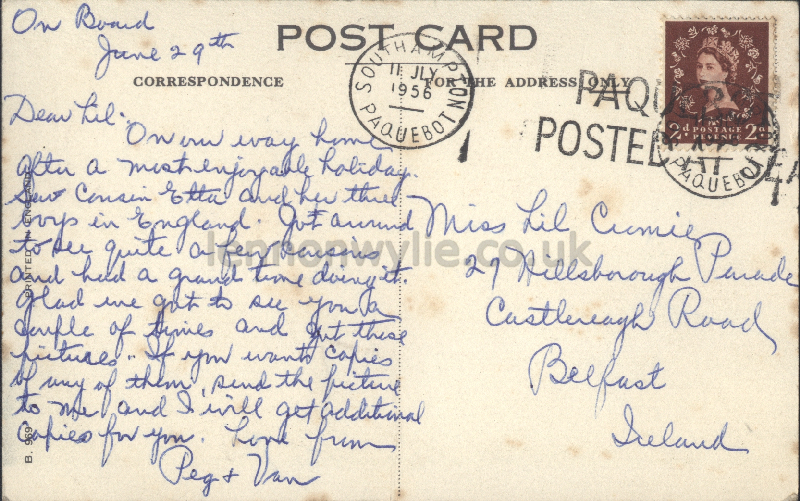 On Board
June 29th
POST CARD
CORRESPONDENCE
FOR THE ADDRESS ONLY
SOUTHAMPTON
11 JLY
1956
PAQUEBOT
PAQUEBOT
POSTED AT SEA
PAQUEBOT
2d POSTAGE 2d
REVENUE
Dear Lil:-
On our way home
after a most enjoyable holiday.
Saw Cousin Etta and her three
boys in England. Got around
to see quite a few cousins
and had a grand time doing it.
Glad we got to see you a
couple of times and got those
pictures. If you want copies
of any of them, send the picture
to me and I will get additional
copies for you. Love from
Peg & Van
Miss Lil
29 Hillsborough Parade
Castlereagh Road
Belfast
Ireland
PRINTED IN ENGLAND
B. 969
lennonwylie.co.uk